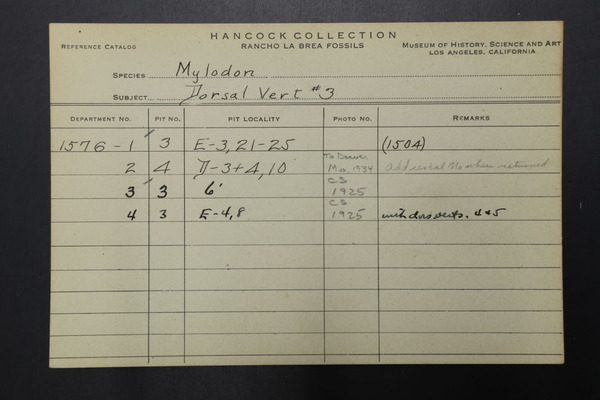 HANCOCK COLLECTION
REFERENCE CATALOG RANCHO LA BREA FOSSILS MUSEUM OF HISTORY, SCIENCE AND ART
LOS ANGELES, CALIFORNIA
SPECIES Mylodon
SUBJECT Dorsal Vert #3
DEPARTMENT NO. PIT NO. PIT LOCALITY PHOTO NO. REMARKS
1576 - 1 3 E-3, 21-25 (1504)
2 4 D-3+4, 10 To Denver Mus. 1934 Add serial No when returned
3 3 6' CS 1925
4 3 E-4, 8 CS 1925 with dors verts. 4 & 5